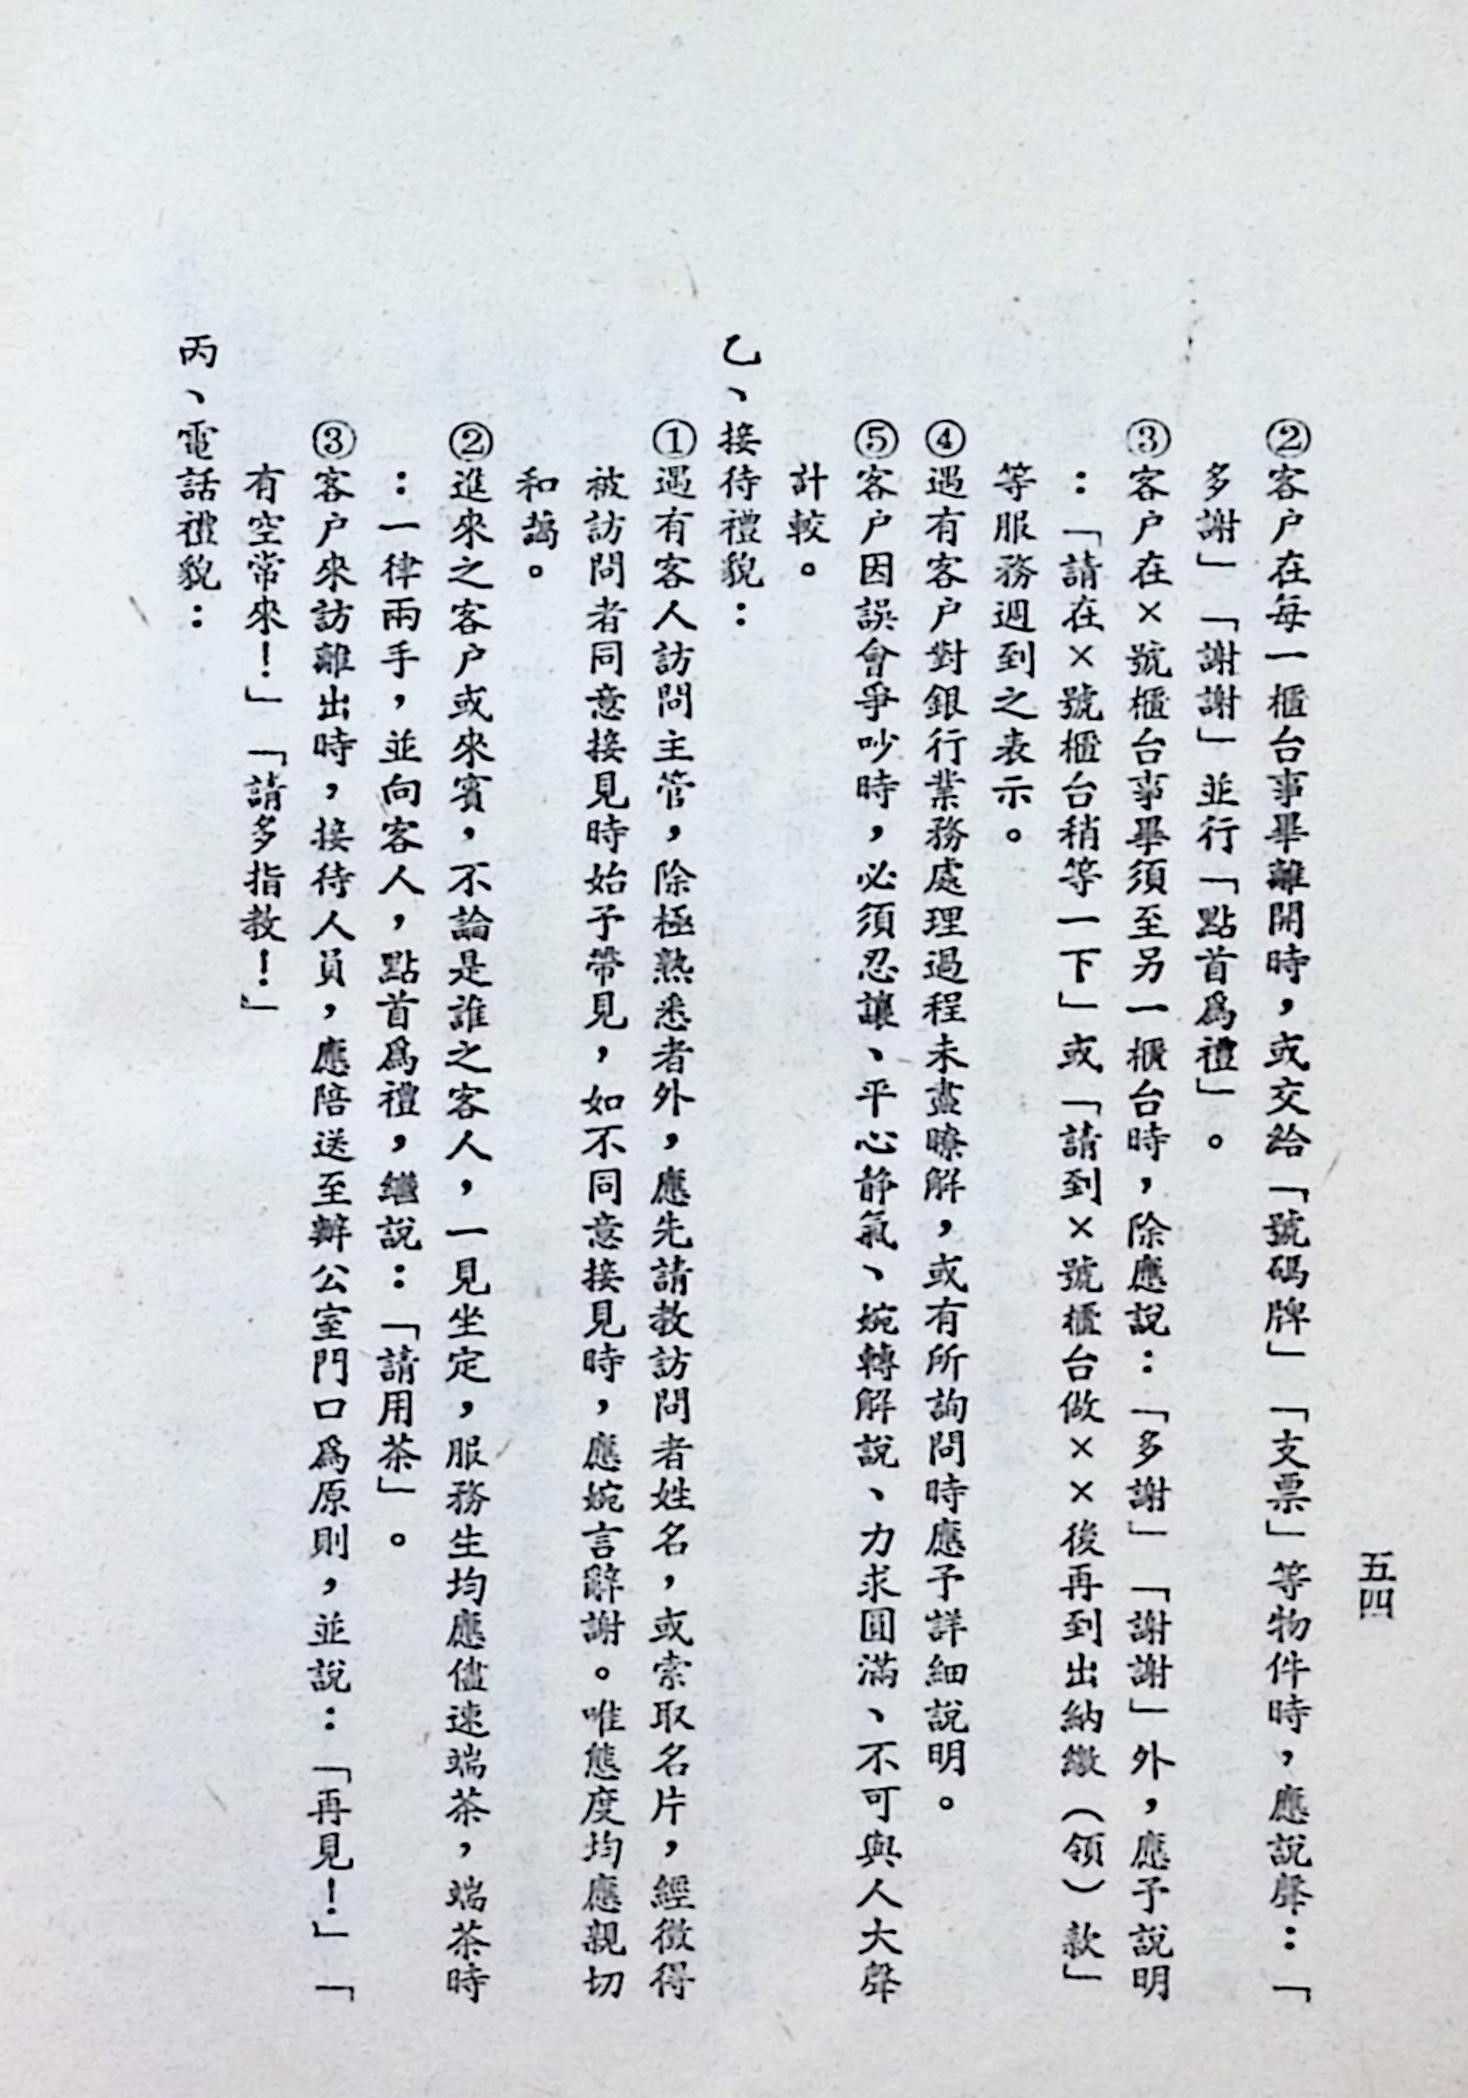 五四
②客户在每一櫃台事畢離開時，或交給「號碼牌」「支票」等物件時，應說聲：「
多謝」「謝謝」並行「點首爲禮」。
③客户在×號櫃台事畢須至另一櫃台時，除應說：「多謝」「謝謝」外，應予說明
：「請在×號櫃台稍等一下」或「請到×號櫃台做××後再到出納繳（領）款」
等服務週到之表示。
④遇有客户對銀行業務處理過程未盡瞭解，或有所詢問時應予詳細說明。
⑤客户因誤會爭吵時，必須忍讓、平心靜氣、婉轉解說、力求圓滿、不可與人大聲
計較。
乙、接待禮貌：
①遇有客人訪問主管，除極熟悉者外，應先請教訪問者姓名，或索取名片，經徵得
被訪問者同意接見時始予帶見，如不同意接見時，應婉言辭謝。唯態度均應親切
和藹。
②進來之客户或來賓，不論是誰之客人，一見坐定，服務生均應儘速端茶，端茶時
：一律兩手，並向客人，點首爲禮，繼說：「請用茶」。
③客户來訪離出時，接待人員，應陪送至辦公室門口爲原則，並說：「再見！」「
有空常來！」「請多指教！」
丙、電話禮貌：